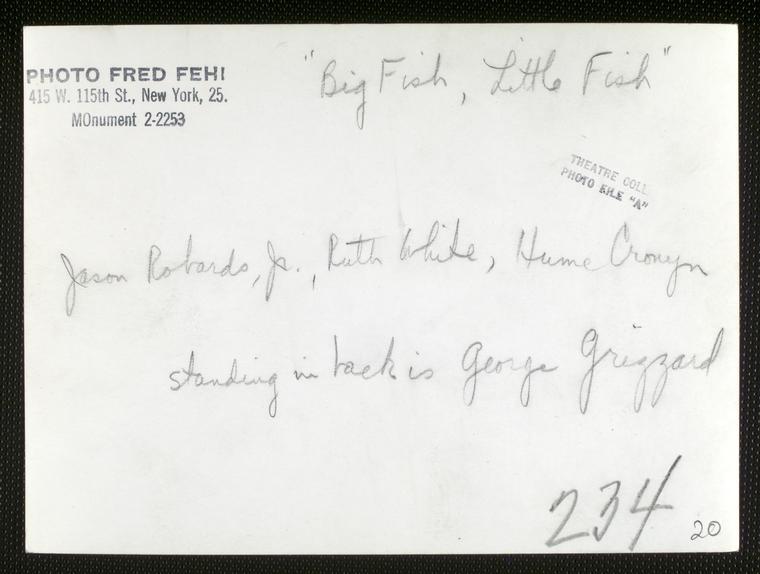 PHOTO FRED FEHl
415 W. 115th St., New York, 25.
MOnument 2-2253
"Big Fish, Little Fish"
THEATRE COLL.
PHOTO FILE "A"
Jason Robards, Jr., Ruth White, Hume Cronyn
standing in back is George Grizzard
234
20